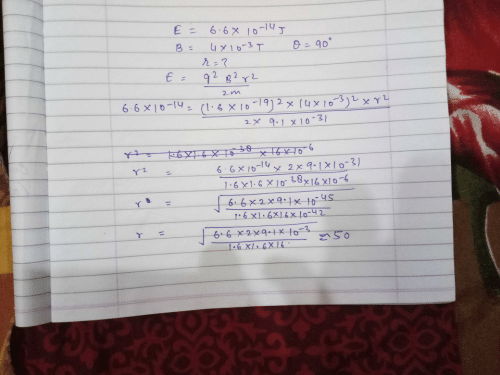 E = 6.6 × 10⁻¹⁴ J
B = 4×10⁻³ T θ = 90°
r = ?
E = q² B² r² / 2m
6.6 × 10⁻¹⁴ = (1.6 × 10⁻¹⁹)² × (4×10⁻³)² × r² / 2 × 9.1 × 10⁻³¹
r² = 1.6×1.6 × 10⁻³⁸ × 16×10⁻⁶
r² = 6.6 × 10⁻¹⁴ × 2 × 9.1 × 10⁻³¹ / 1.6 × 1.6 × 10⁻³⁸ × 16 × 10⁻⁶
r = √ 6.6 × 2 × 9.1 × 10⁻⁴⁵ / 1.6 × 1.6 × 16 × 10⁻⁴²
r = √ 6.6 × 2 × 9.1 × 10⁻³ / 1.6 × 1.6 × 16 ≈ 50